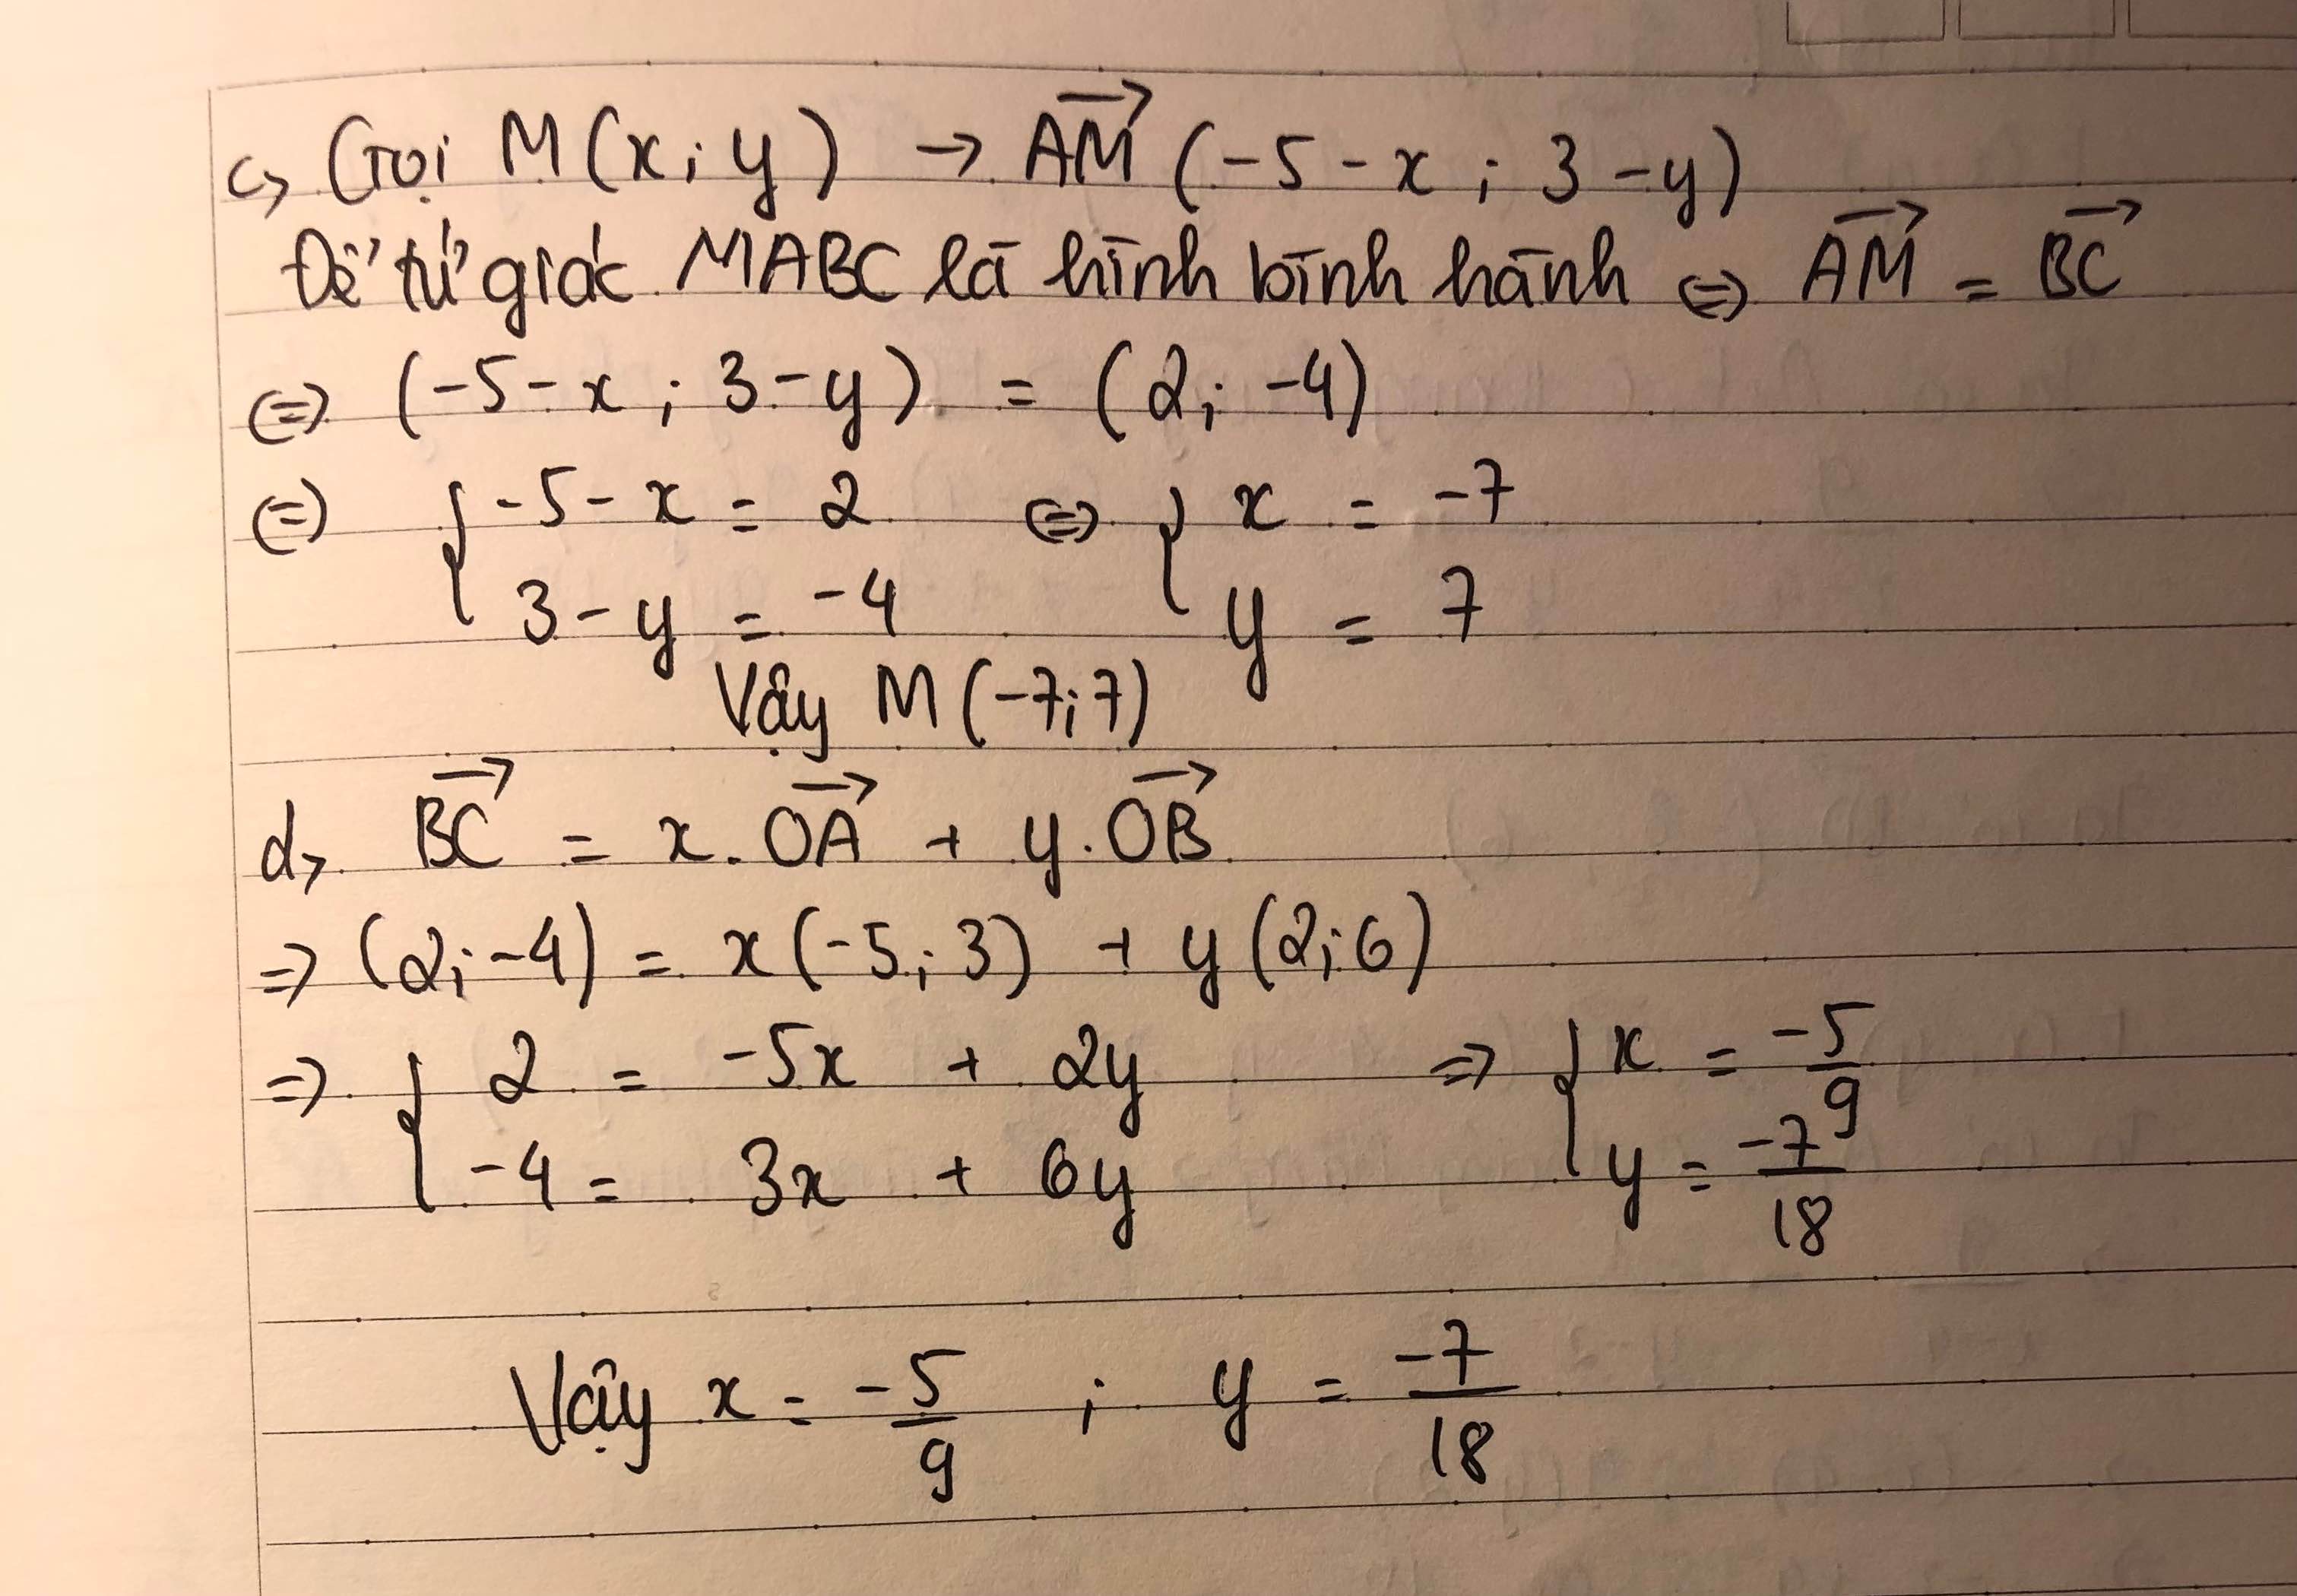 c, Gọi M(x; y) → AM⃗ (-5-x; 3-y)
Để tứ giác MABC là hình bình hành ⇔ AM⃗ = BC⃗
⇔ (-5-x; 3-y) = (2; -4)
⇔ { -5-x = 2 ⇔ { x = -7
3-y = -4 y = 7
Vậy M(-7; 7)
d, BC⃗ = x.OA⃗ + y.OB⃗
⇒ (2; -4) = x(-5; 3) + y(2; 6)
⇒ { 2 = -5x + 2y ⇒ { x = -5/9
-4 = 3x + 6y y = -7/18
Vậy x = -5/9 ; y = -7/18